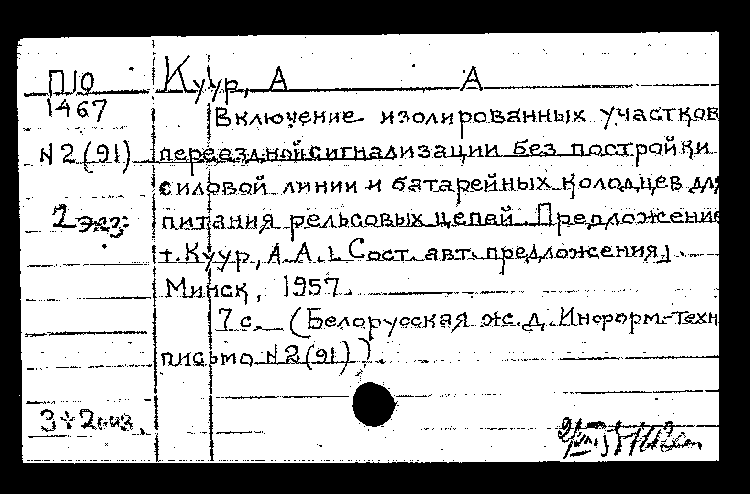 П10 Куур, А А
1467 Включение изолированных участков
N2(91) переездной сигнализации без постройки
силовой линии и батарейных колодцев для
2 экз. питания рельсовых цепей. Предложение
т. Куур, А.А. [Сост. авт. предложения]
Минск, 1957.
7 с. (Белорусская ж.д. Информ.-техн
письмо N2(91)).
3+2